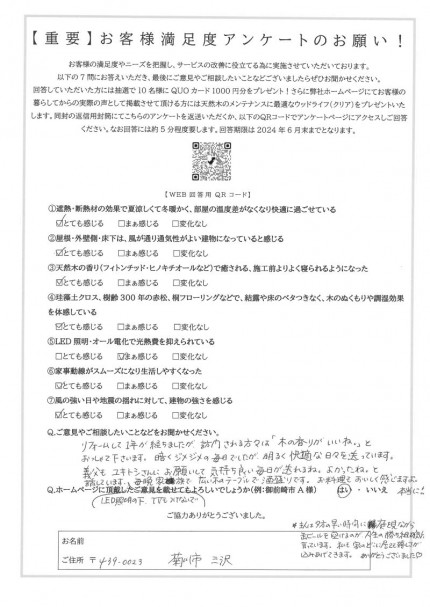 【重要】お客様満足度アンケートのお願い！
お客様の満足度やニーズを把握し、サービスの改善に役立てる為に実施させていただいております。
以下の7問にお答えいただき、最後にご意見やご相談したいことなどございましたらぜひお聞かせください。
回答していただいた方には抽選で10名様にQUOカード1000円分をプレゼント！さらに弊社ホームページにてお客様の
暮らしてからの実際の声として掲載させて頂ける方には天然木のメンテナンスに最適なウッドライフ(クリア)をプレゼントいた
します。同封の返信用封筒にてこちらのアンケートを返送いただくか、以下のQRコードでアンケートページにアクセスしご回答
ください。なお回答には約5分程度要します。回答期限は2024年6月末までとなります。
【WEB回答用QRコード】
①遮熱・断熱材の効果で夏涼しくて冬暖かく、部屋の温度差がなくなり快適に過ごせている
☑とても感じる □まぁ感じる □変化なし
②屋根・外壁側・床下は、風が通り通気性がよい建物になっていると感じる
☑とても感じる □まぁ感じる □変化なし
③天然木の香り(フィトンチッド・ヒノキチオールなど)で癒される、施工前よりよく寝れるようになった
☑とても感じる □まぁ感じる □変化なし
④珪藻土クロス、樹齢300年の赤松、桐フローリングなどで、結露や床のベタつきなく、木のぬくもりや調湿効果
を体感している
☑とても感じる □まぁ感じる □変化なし
⑤LED照明・オール電化で光熱費を抑えられている
□とても感じる ☑まぁ感じる □変化なし
⑥家事動線がスムーズになり生活しやすくなった
☑とても感じる □まぁ感じる □変化なし
⑦風の強い日や地震の揺れに対して、建物の強さを感じる
☑とても感じる □まぁ感じる □変化なし
Q.ご意見やご相談などございましたらお聞かせください。
リフォームして1年が経ちましたが、訪問される方々は「木の香りがいいね。」と
おっしゃて下さいます。暗くジメジメの毎日でしたが、明るく快適な日々を送っています。
義父も ユキトシさんにお願いして気持ち良い毎日が送れるね。よかったね。と
話しています。毎晩 家族で 広い木のテーブルで お料理もおいしく感じますよ。
Q.ホームページに頂戴したご意見を載せてもよろしいでしょうか(例:御前崎市A様) はい・いいえ 本当に!
(LED照明の下、
ご協力ありがとうございました。
お名前
ご住所 〒439-0023 菊川市 三沢
ありがとうございました